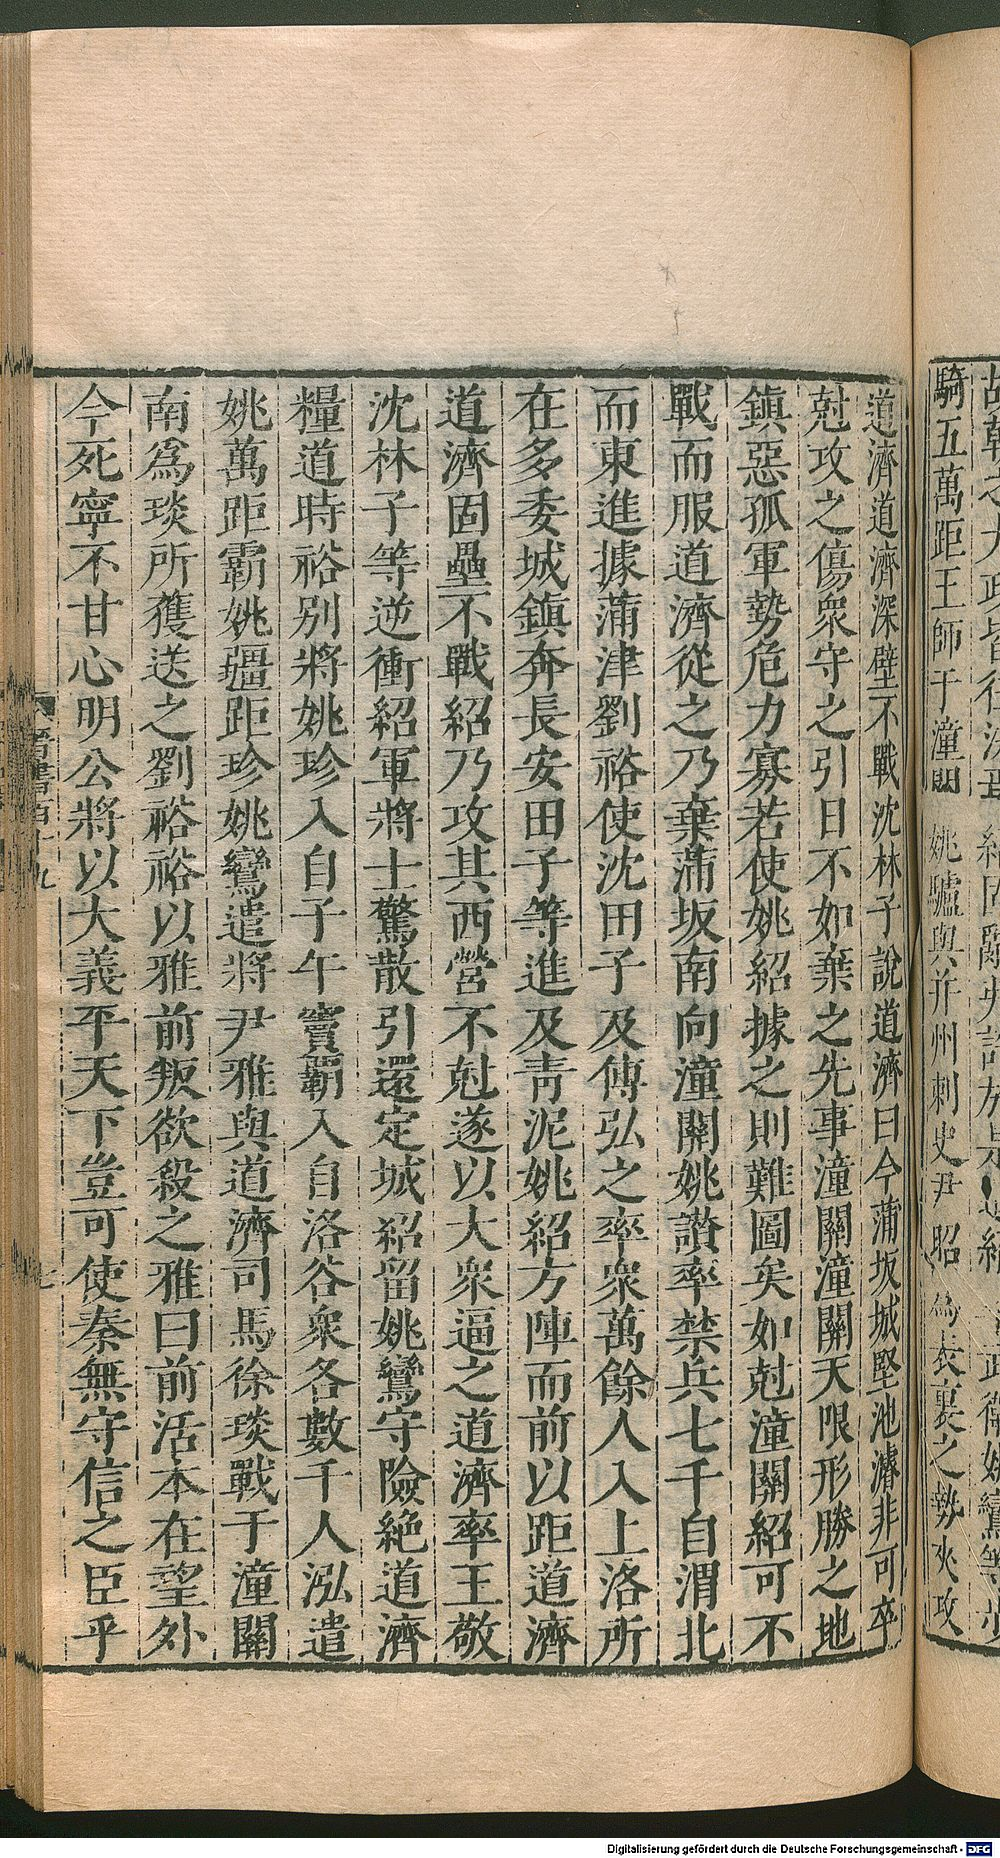 騎五萬距王師于潼關姚驢與并州刺史尹昭為表裏之勢夾攻
道濟道濟深壁不戰沈林子說道濟曰今蒲坂城堅池濬非可卒
尅攻之傷衆守之引日不如棄之先事潼關潼關天限形勝之地
鎮惡孤軍勢危力寡若使姚紹據之則難圖矣如尅潼關紹可不
戰而服道濟從之乃棄蒲坂南向潼關姚讚率禁兵七千自渭北
而東進據蒲津劉裕使沈田子及傅弘之率衆萬餘人入上洛所
在多委城鎮奔長安田子等進及青泥姚紹方陣而前以距道濟
道濟固壘不戰紹乃攻其西營不尅遂以大衆逼之道濟率王敬
沈林子等逆衝紹軍將士驚散引還定城紹留姚鸞守險絶道濟
糧道時裕别將姚珍入自子午竇霸入自洛谷衆各數千人泓遣
姚萬距霸姚彊距珍姚鸞遣將尹雅與道濟司馬徐琰戰于潼關
南爲琰所獲送之劉裕裕以雅前叛欲殺之雅曰前活本在望外
今死寧不甘心明公將以大義平天下豈可使秦無守信之臣乎
Digitalisierung gefördert durch die Deutsche Forschungsgemeinschaft - DFG